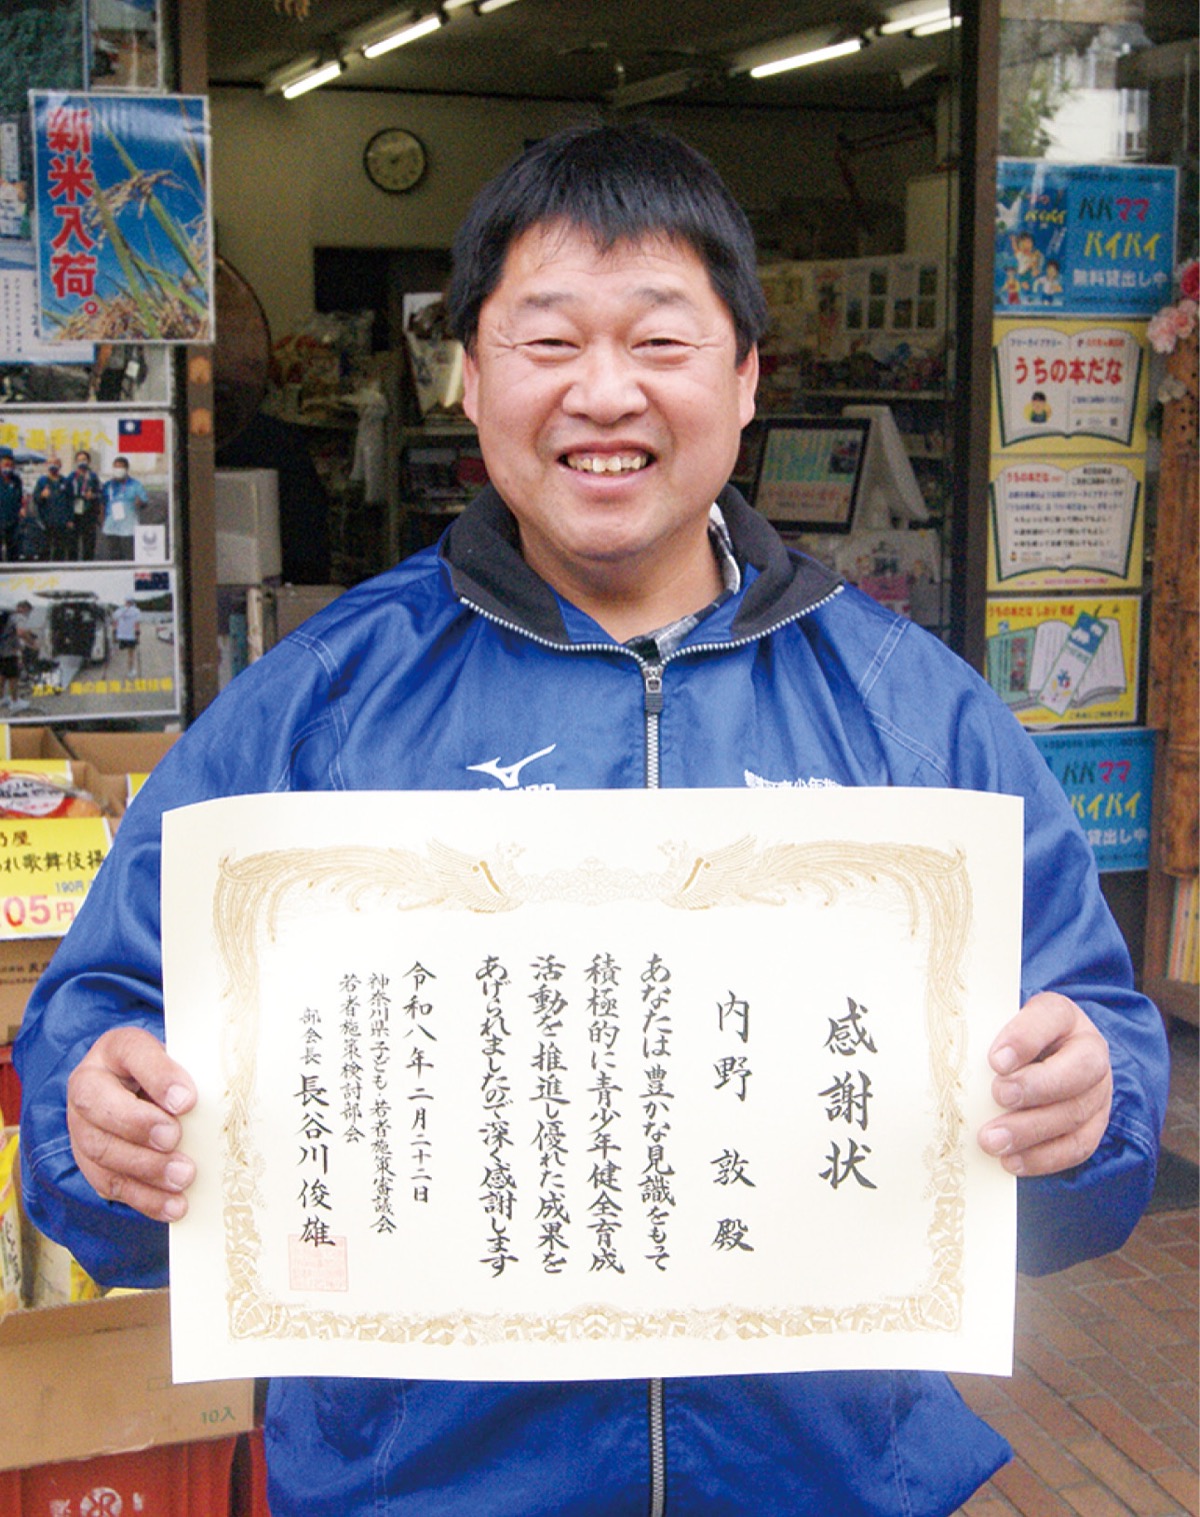 感謝状
内野 敦 殿
あなたは豊かな見識をもって
積極的に青少年健全育成
活動を推進し優れた成果を
あげられましたので深く感謝します
令和八年二月二十二日
神奈川県子ども・若者施策審議会
若者施策検討部会
部会長 長谷川俊雄
新米入荷。
パパママ
バイバイ
無料貸出し中
うちの本だな
うちの本だな しおり 完成
パパママ
バイバイ
貸出し中
れ歌舞伎揚
190円
05円
10入